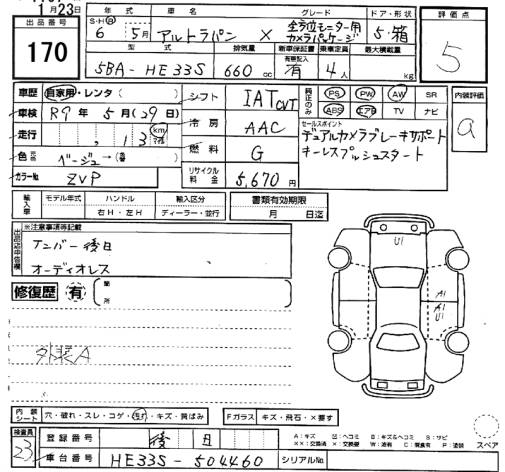 月23日
出品番号 170
年式 S・H 6 5月
車名 アルトラパン
グレード X 全方位モニター用カメラパッケージ
ドア・形状 5・箱
型式 5BA-HE33S
排気量 660 cc
新車保証書 有無記入 有
乗車定員 4人
最大積載量 kg
評価点 5
内装評価 a
車歴 自家用・レンタ( )
シフト IAT CVT
純正のみ PS PW AW SR ABS エアB TV ナビ
車検 R9年5月(29日)
冷房 AAC
セールスポイント
デュアルカメラブレーキサポート
キーレスプッシュスタート
走行 ,13 km
燃料 G
色 ベージュ→( )
カラーNo ZVP
リサイクル料金 5,670円
輸入車 モデル年式 ハンドル 右H・左H 輸入区分 ディーラー・並行
書類有効期限 月 日迄
出品店申告欄 ※注意事項等記載
ナンバー後日
オーディオレス
修復歴 有 箇所
外装A
U1
A1
A1
U1
内装シート 穴・破れ・スレ・コゲ・汚れ・キズ・黄ばみ
Fガラス キズ・飛石・×要す
検査員 23
登録番号 後日
車台番号 HE33S-504460
シリアルNo
A:キズ U:ヘコミ B:キズ&ヘコミ S:サビ
XX:交換済 X:交換要 W:波有 C:腐食有 P:塗装
スペア